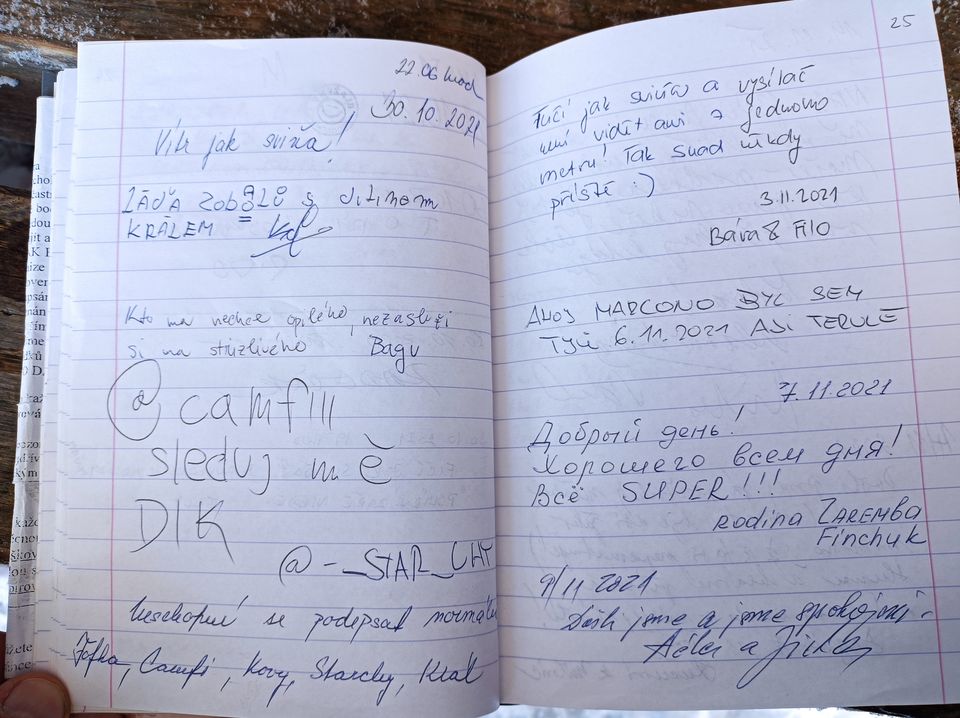 22.06 hod
30.10.2021
Vítr jak sviňa!
LÁĎA ZOBALŮ s
KRÁLEM
Kto ma nechce opilého, nezaslúži
si na strízlivého Bagu
@camfiii
sleduj mě
DIK
@-_STAR_CHY
neschopní se podepsat normálně
Camfi, Kovy, Starchy, Král
25
Fučí jak sviňa a vysílač
není vidět ani z jednoho
metru! Tak snad někdy
příště :)
3.11.2021
Bára & Filo
AHOJ MARCONO BYL SEM
TYJÍ 6.11.2021 ASI TERULĚ
7.11.2021
Добрый день!
Хорошего всем дня!
Всё SUPER!!!
rodina ZAREMBA
Finchuk
9/11 2021
Došli jsme a jsme spokojení.
a Jirka